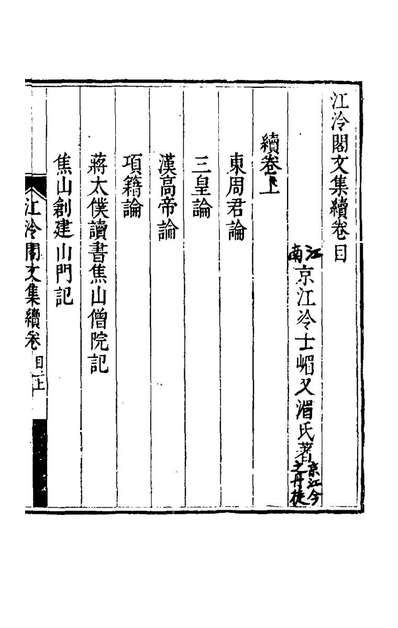 江泠閣文集續卷目
江南京江冷士嵋又湄氏著京江今之丹徒
續卷上
東周君論
三皇論
漢高帝論
項籍論
蔣太僕讀書焦山僧院記
焦山創建山門記
江泠閣文集續卷目上